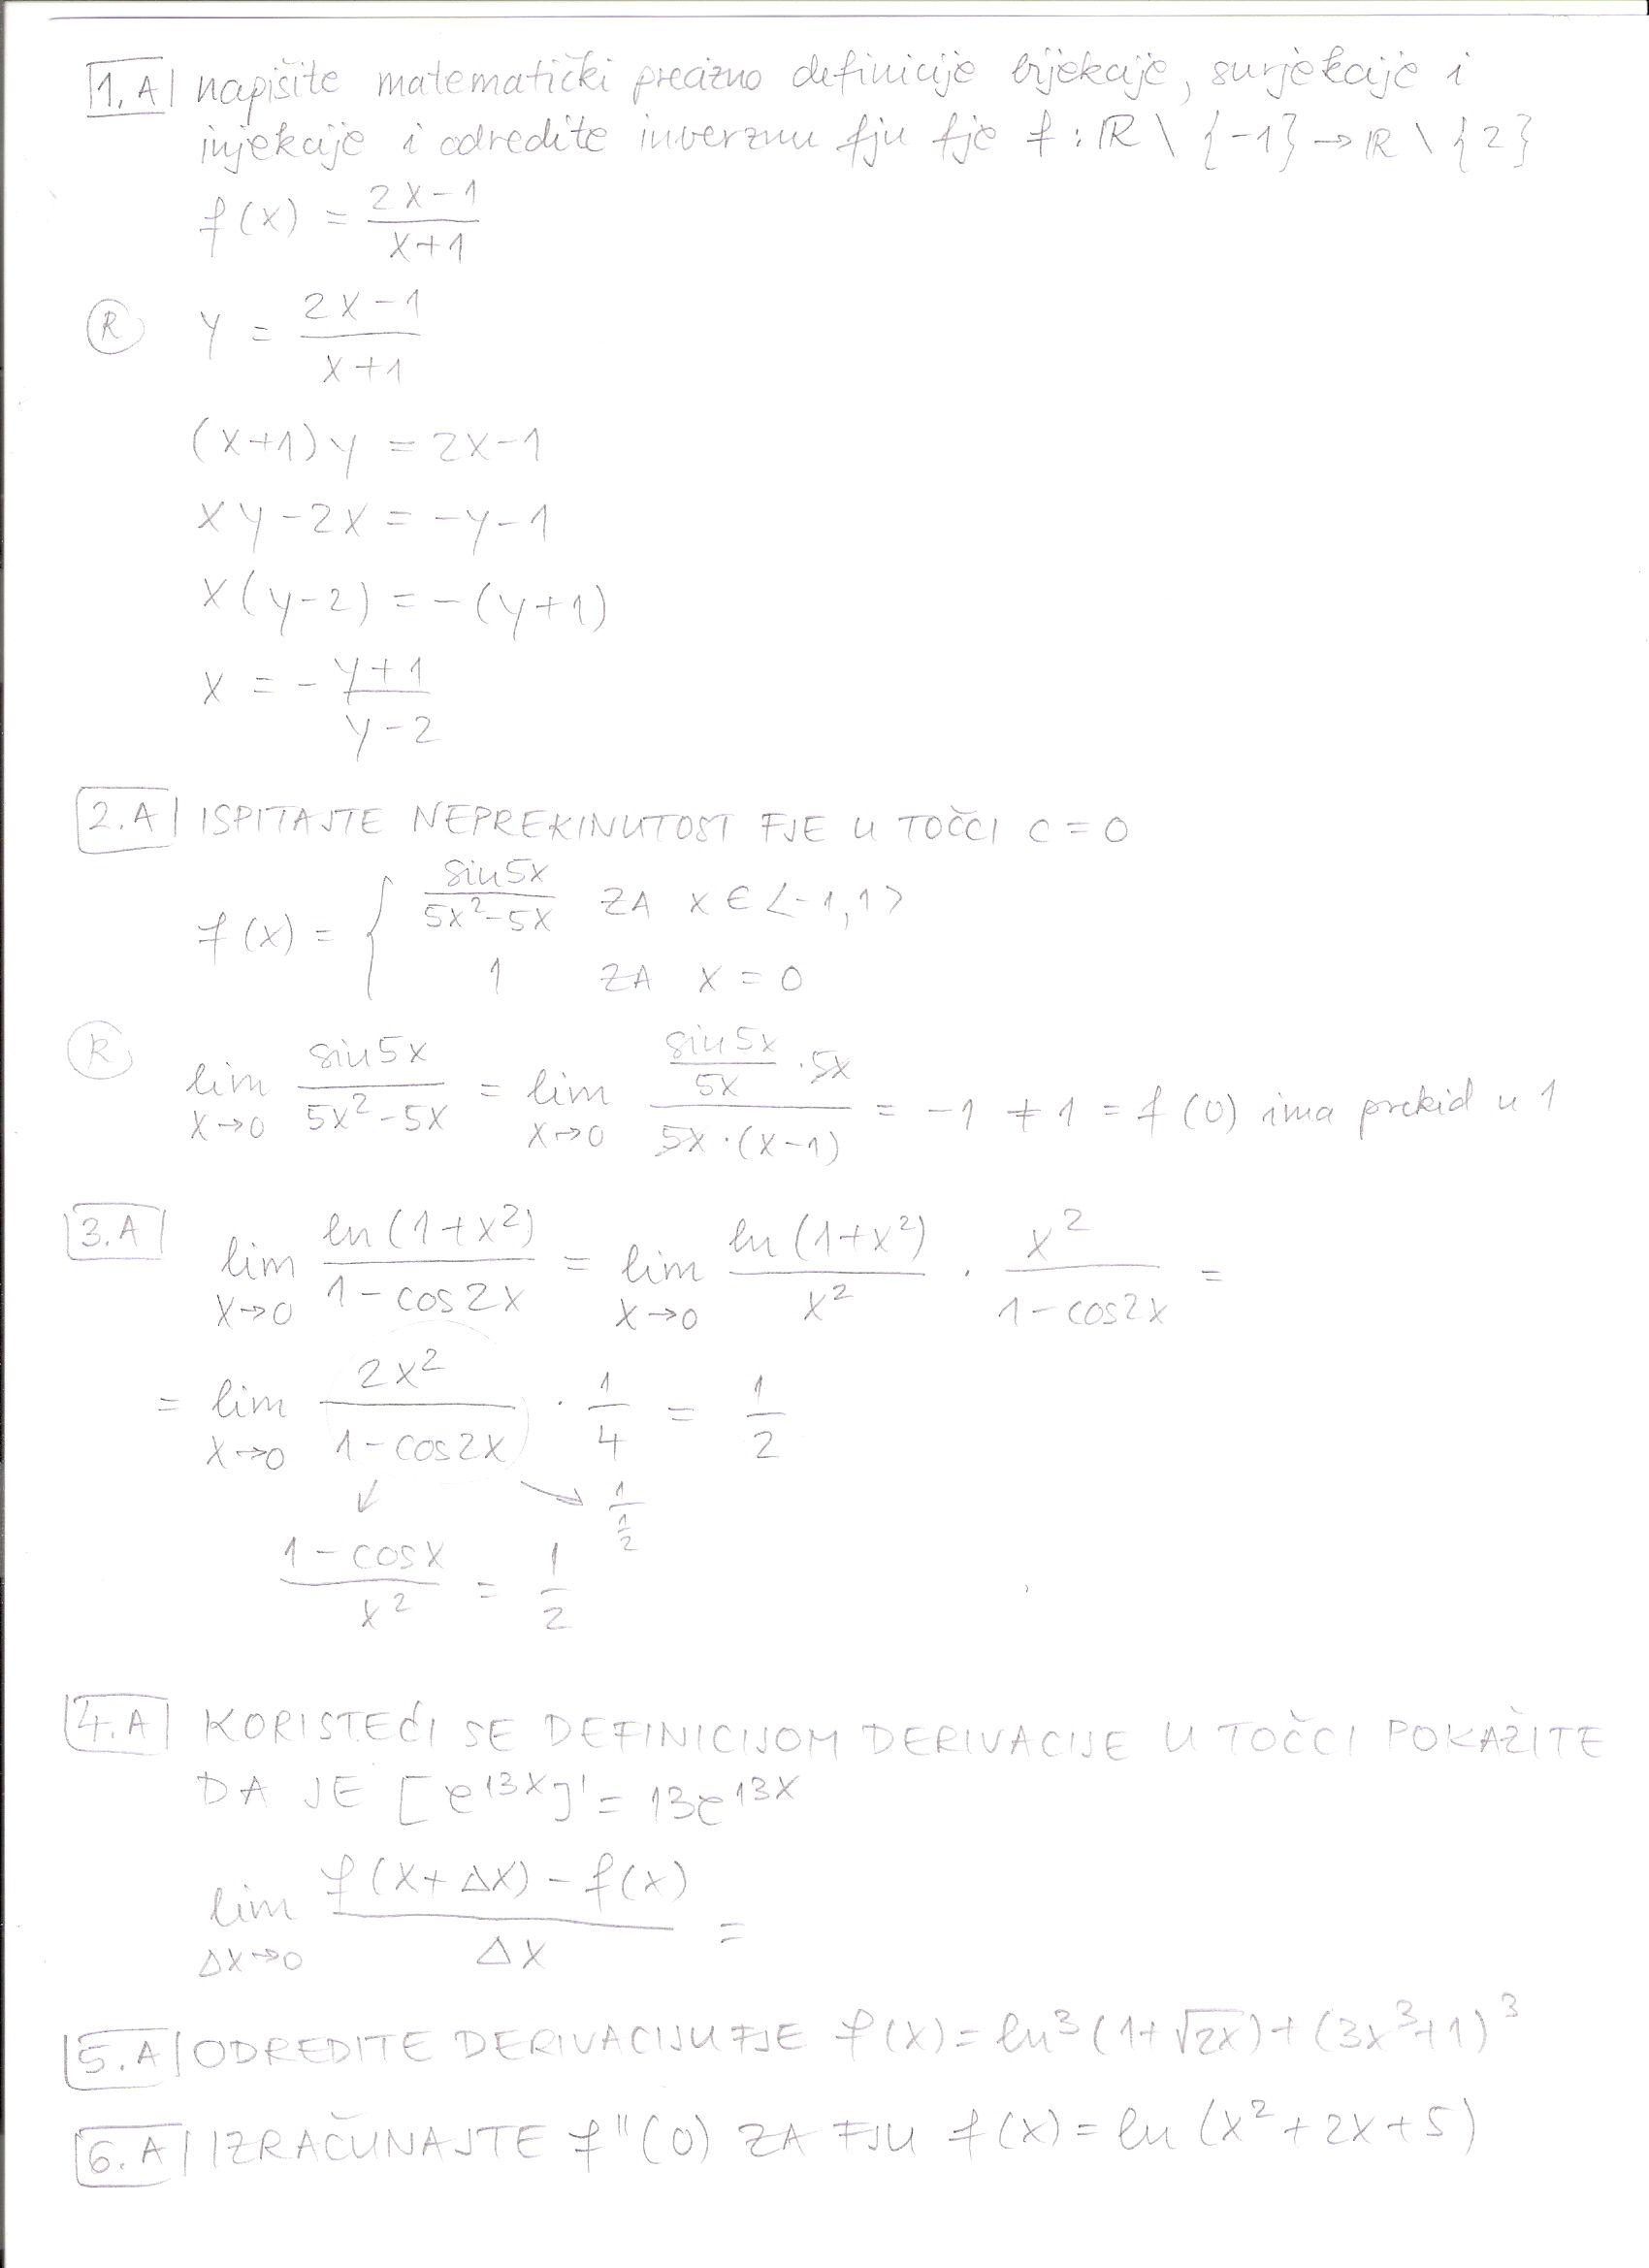 1.A napišite matematički precizno definicije bijekcije, surjekcije i
injekcije i odredite inverznu fju fje f : ℝ \ {-1} → ℝ \ {2}
f(x) = (2x-1)/(x+1)
Ⓡ y = (2x-1)/(x+1)
(x+1)y = 2x-1
xy-2x = -y-1
x(y-2) = -(y+1)
x = - (y+1)/(y-2)
2.A ISPITAJTE NEPREKINUTOST FJE U TOČCI C=0
f(x) = { sin5x/(5x²-5x) ZA x ∈ <-1,1>
1 ZA x = 0
Ⓡ lim x→0 sin5x/(5x²-5x) = lim x→0 (sin5x/5x · 5x)/(5x·(x-1)) = -1 ≠ 1 = f(0) ima prekid u 1
3.A lim x→0 ln(1+x²)/(1-cos2x) = lim x→0 ln(1+x²)/x² · x²/(1-cos2x) =
= lim x→0 2x²/(1-cos2x) · 1/4 = 1/2
↙ ↘ 1/(1/2)
(1-cosx)/x² = 1/2
4.A KORISTEĆI SE DEFINICIJOM DERIVACIJE U TOČCI POKAŽITE
DA JE [e^13x]' = 13e^13x
lim Δx→0 (f(x+Δx) - f(x))/Δx =
5.A ODREDITE DERIVACIJU FJE f(x) = ln³(1+√2x)+(3x³+1)³
6.A IZRAČUNAJTE f"(0) ZA FJU f(x) = ln(x²+2x+5)